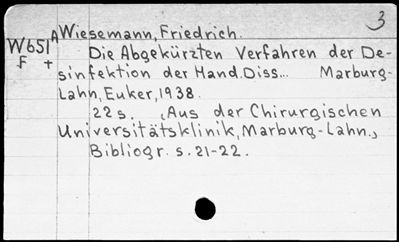 3
A Wiesemann, Friedrich.
W651
F +
Die Abgekürzten Verfahren der De-
sinfektion der Hand. Diss... Marburg-
Lahn, Euker, 1938.
22 s. (Aus der Chirurgischen
Universitätsklinik, Marburg-Lahn.,
Bibliogr. s. 21-22.